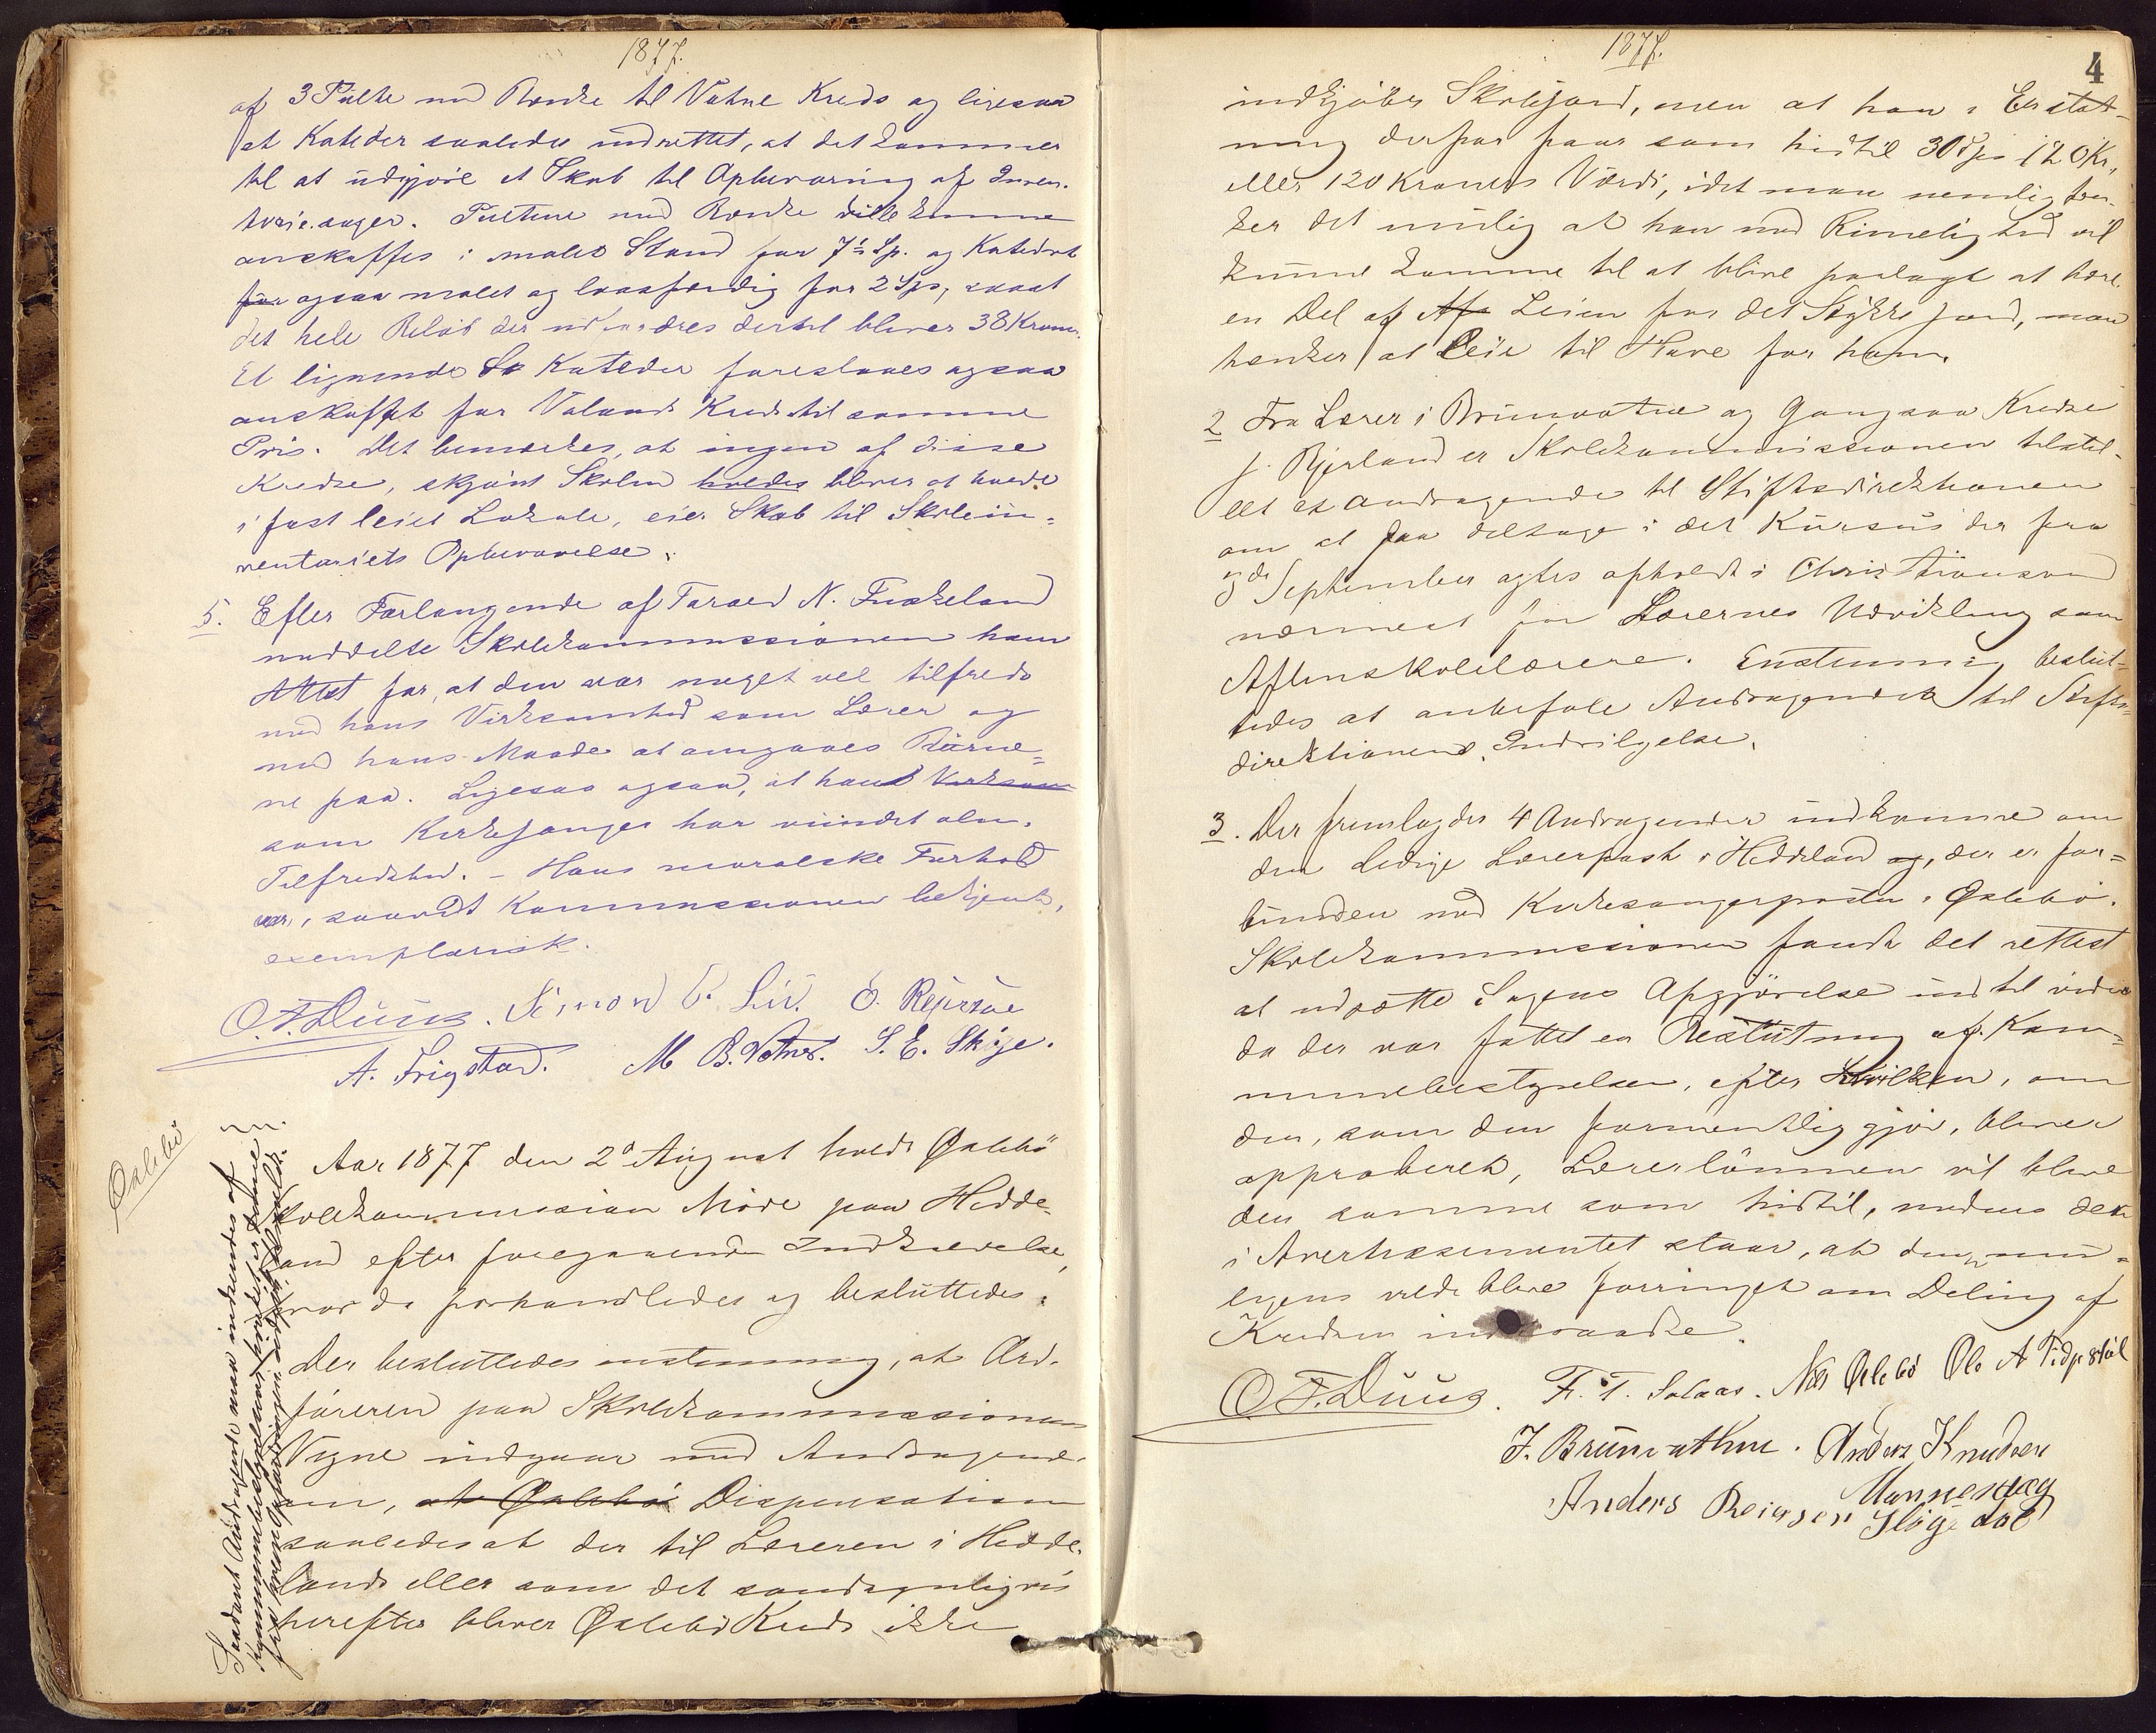 1877.
af 3 Pulte med Bænke til Vatne Kreds og ligesaa
et Kateder saaledes indrettet, at det kommer
til at udgjøre et Skab til Opbevaring af Inven-
teriesager. Pultene med Bænke ville kunne
anskaffes i malet Stand for 7½ Sp. og Katedret
for ogsaa malet og laasfærdig for 2 Spd, saaat
det hele Beløb der udfordres dertil bliver 38 Kroner.
Et lignende Sk Kateder foreslaaes ogsaa
anskaffet for Valands Kreds til samme
Pris. Det bemærkes, at ingen af disse
Kredse, skjønt Skolen holdes bliver at holde
i fast leiet Lokale, eier Skab til Skolein-
ventariets Opbevarelse.
5. Efter Forlangende af Tarald N. Fuskeland
meddelte Skolekommissionen ham
Attest for, at den var meget vel tilfreds
med hans Virksomhed som Lærer og
med hans Maade at omgaaes Børne-
ne paa. Ligesaa ogsaa, at hans Virksom
som Kirkesanger har vundet alm.
Tilfredshed. - Hans moralske Forhold
var, saavidt Kommissionen bekjendt,
exemplarisk.
O. F. Duus. Simon T. Liv. O. Reiersøe
A. Frigstad. M B. Vatne. S. E. Skøje.
Øslebø
Aar 1877 den 2d August holdt Øslebø
Skolekommission Møde paa Hedde-
land efter foregaaende Indkaldelse,
hvor da forhandledes og besluttedes:
Der besluttedes enstemmig, at Ord-
føreren paa Skolekommissionens
Vegne indgaar med Andragende
om, at Øslebø Dispensation
saaledes at der til Læreren i Hedde-
lands eller som det sandsynligvis
herefter bliver Øslebø Kreds ikke
Saadant Andragende maa indsendes af
Kommunebestyrelsen, hvortil er
1877.
4
indkjøbes Skolejord, men at han i Erstat-
ning derfor faar som hidtil 30 Spd 120 Kr,
eller 120 Kroners Værdi, idet man nemlig tæn-
ker det mulig at han med Rimelighed vil
kunne komme til at blive paalagt at bære
en Del af Af Leien for det Stykke Jord, man
tænker at leie til Have for ham.
2 Fra Lærer i Brunvatne og Gangsaa Kredse
J. Bjerland er Skolekommissionen tilstil-
let et Andragende til Stiftsdirektionen
om at faa deltage i det Kursus der fra
3die September agtes afholdt i Christianssand
nærmest for Lærernes Udvikling som
Aftenskolelærere. Enstemmig beslut-
tedes at anbefale Andragendet til Stifts-
direktionens Indvilgelse.
3. Der fremlagdes 4 Andragender indkomne om
den ledige Lærerpost i Heddeland og, der er for-
bunden med Kirkesangerposten i Øslebø.
Skolekommissionen fandt det rettest
at udsætte Sagens Afgjørelse indtil videre
da der var fattet en Beslutning af Kom-
munebestyrelsen, efter hvilken, om
den, som den formentlig gjør, bliver
approberet, Lærerlønnen vil blive
den samme som hidtil, medens det
i Avertissementet staar, at den mu-
ligens vilde blive forringet om Deling af
Kredsen indtraadte.
O. F. Duus. F. T. Solaas. Nils Øslebø Ole A
J. Brunvathne. Anders Knudsen
Manneslag
Anders Reiersen